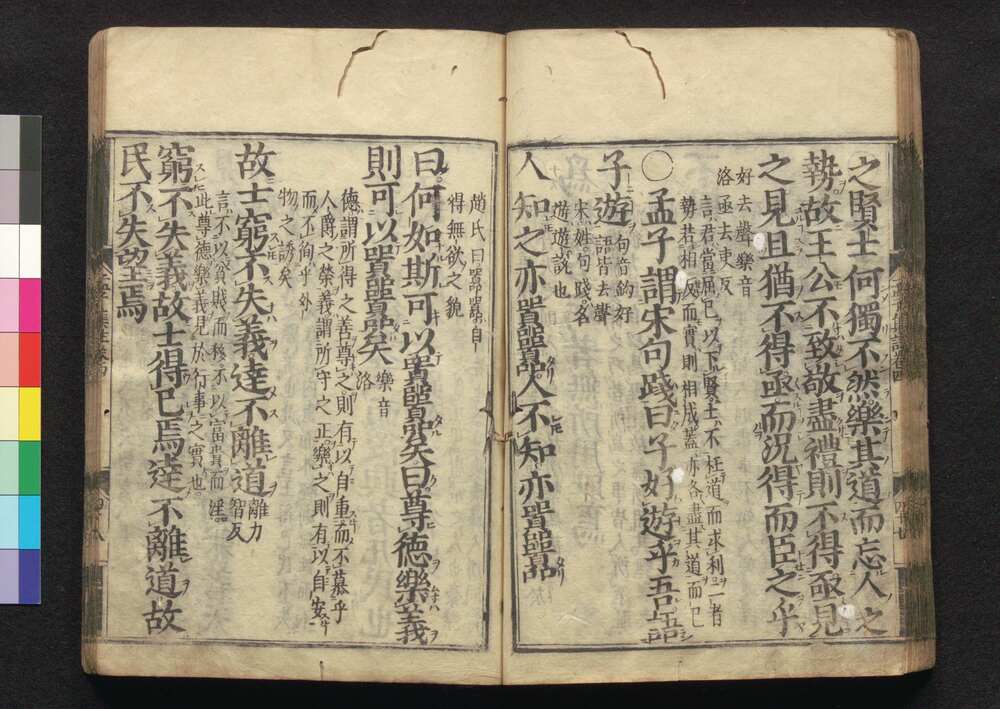 之賢士何獨不然樂其道而忘人之
勢故王公不致敬盡禮則不得亟見
之見且猶不得亟而況得而臣之乎
好去聲樂音
洛亟去吏反
言君當屈己以下賢士不枉道而求利二者
勢若相反而實則相成蓋亦各盡其道而已
○孟子謂宋句踐曰子好遊乎吾語
子遊
句音鉤好
語皆去聲
宋姓句踐名
遊遊說也
人知之亦囂囂人不知亦囂囂
趙氏曰囂囂自
得無欲之貌
曰何如斯可以囂囂矣曰尊德樂義
則可以囂囂矣
樂音
洛
德謂所得之善尊之則有以自重而不慕乎
人爵之榮義謂所守之正樂之則有以自安
而不徇乎外
物之誘矣
故士窮不失義達不離道
離力
智反
言不以貧賤而移不以富貴而淫
此尊德樂義見於行事之實也
窮不失義故士得己焉達不離道故
民不失望焉